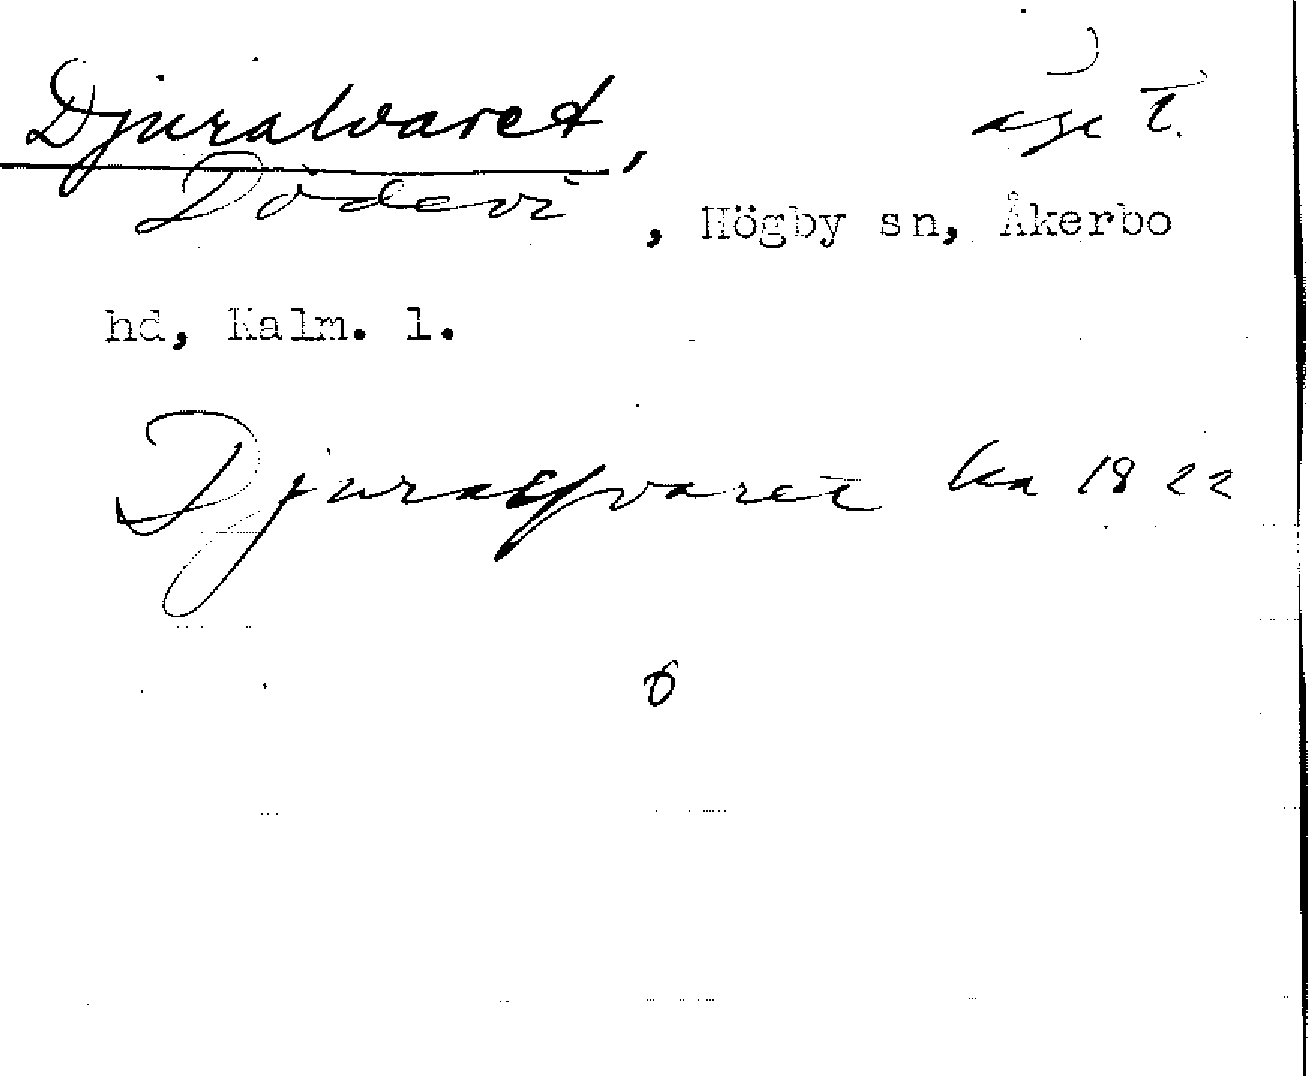 Djuralvaret,
Dödevi, Högby sn, Åkerbo
hd, Kalm. l.
Djuralfvaret ka 1822